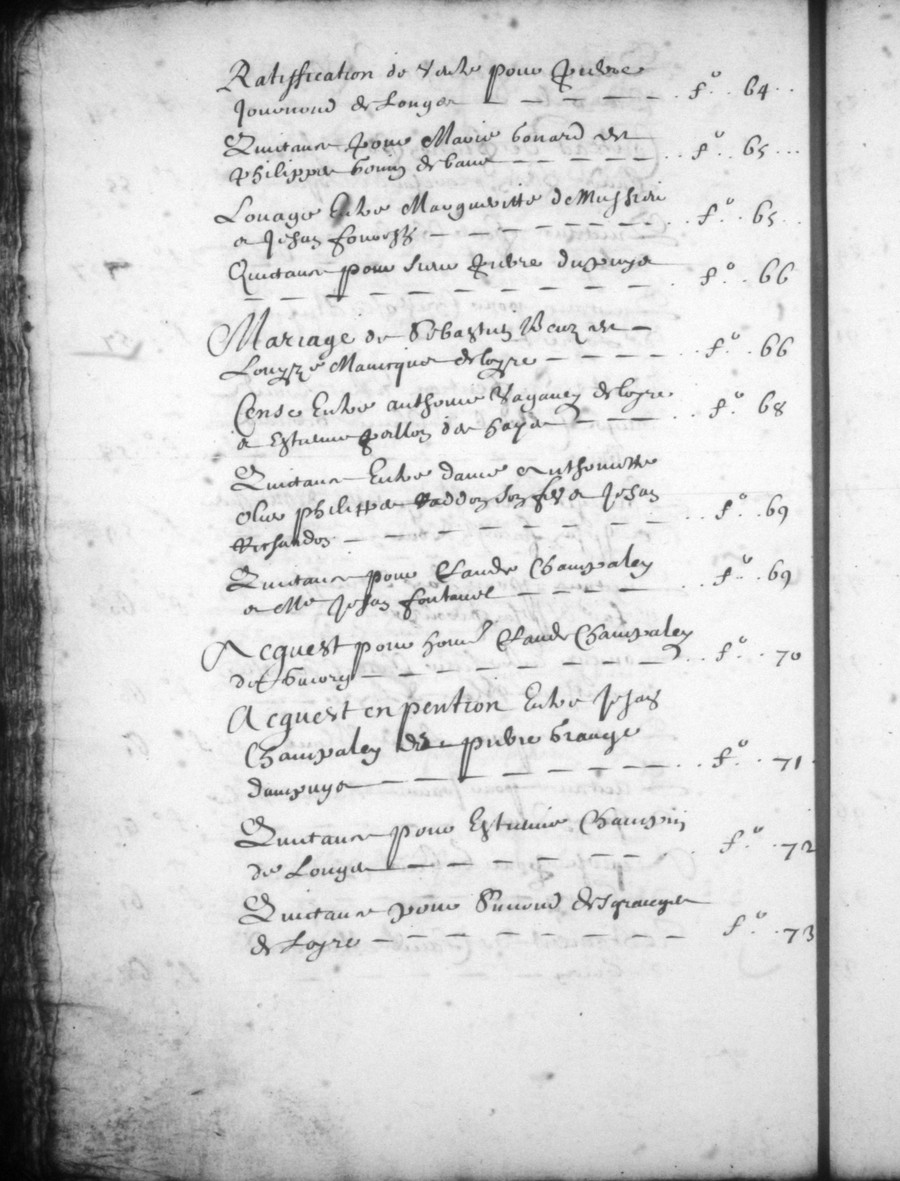 Ratiffication de vente pour Pierre
Jouenond de Longes - - - - - f.º 64
Quictance pour Marie bonard et
Philippe bonin de baue - - - - - f.º 65
Louage Entre Margueritte de Mussieu
e Jehan - - - - - - f.º 65
Quictance pour sieur Pierre dupuys
- - - - - - - - f.º 66
Mariage de Sebastien et
Louyze de loyre - - - - f.º 66
Cense Entre anthoine Vaganey de loyre
e Estienne de haye - - - f.º 68
Quictance Entre dame Anthoinette
Olier Philippe son filz e Jehan
Richardon - - - - - - - f.º 69
Quictance pour Claude Champaley
e Me Jehan fontanel - - - - - f.º 69
Acquest pour hon. Claude Champaley
de - - - - - - - f.º 70
Acquest en pention Entre Jehan
Champaley et pierre grange
dampuys - - - - - - - f.º 71
Quictance pour Estienne Champin
de Longes - - - - - - f.º 72
Quictance pour Simond desgranges
de Loyre - - - - - - - f.º 73